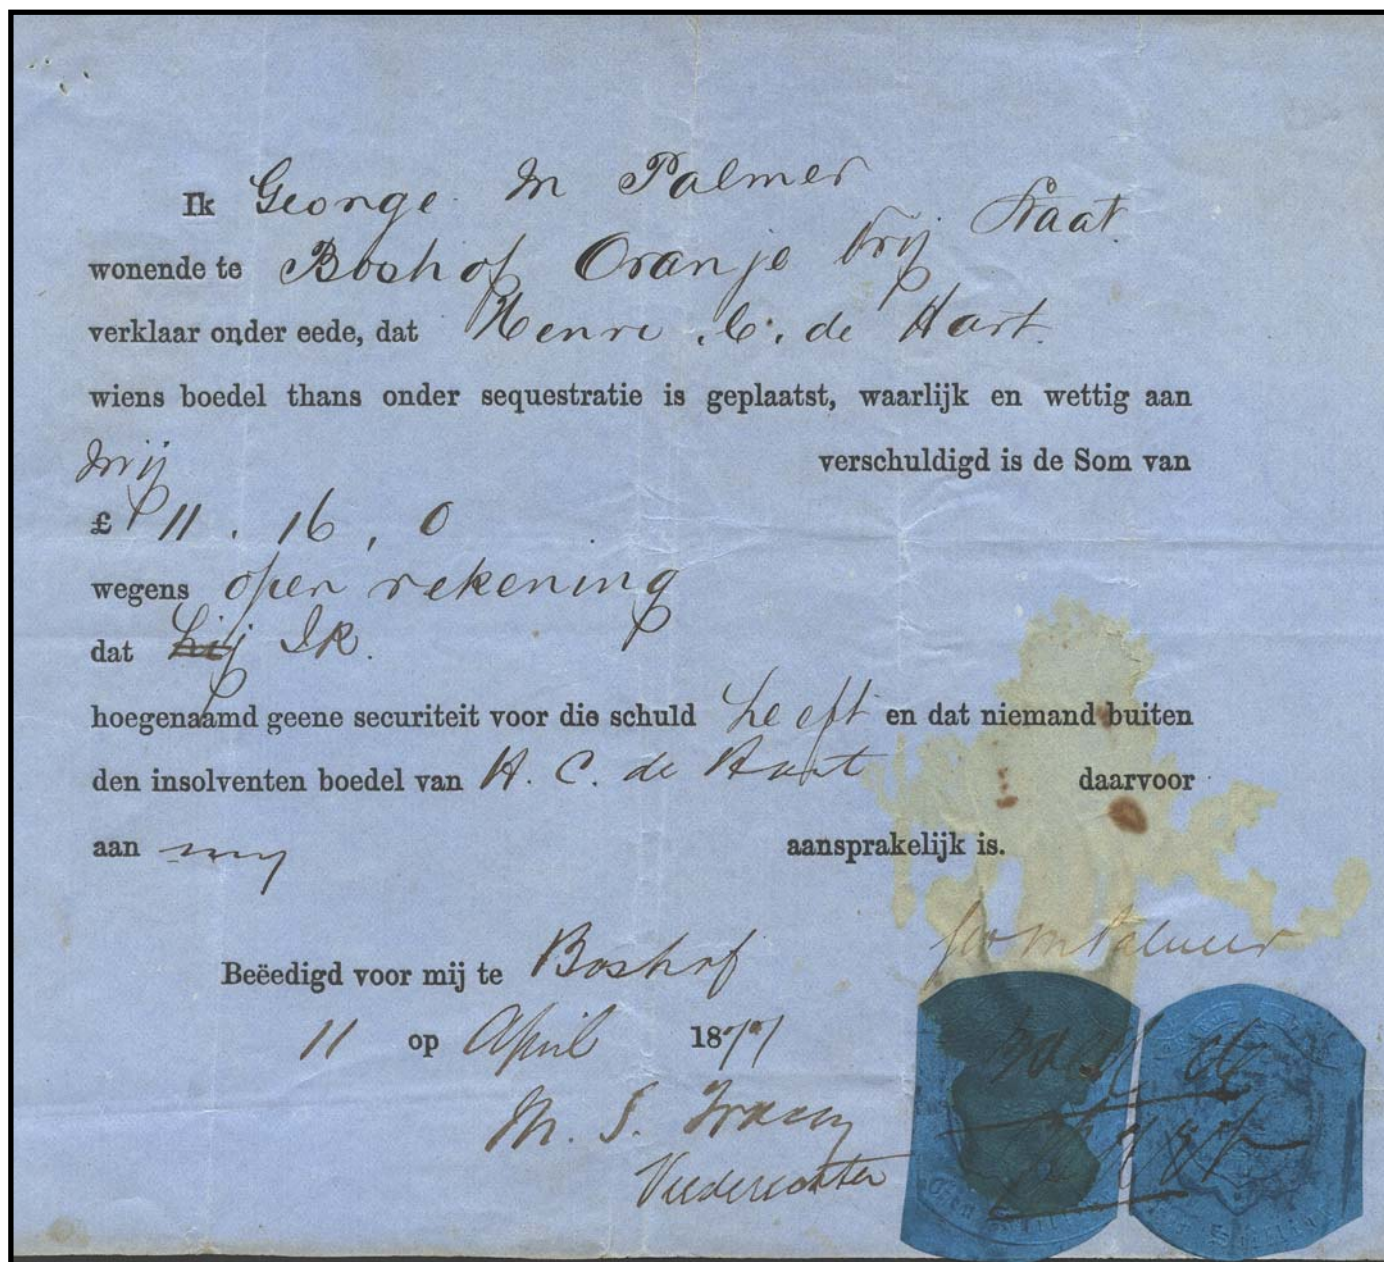 Ik George M Palmer
wonende te Boshof Oranje Vrij Staat
verklaar onder eede, dat Henri C. de Hart
wiens boedel thans onder sequestratie is geplaatst, waarlijk en wettig aan
mij verschuldigd is de Som van
£ 11. 16, 0
wegens open rekening
dat hij Ik.
hoegenaamd geene securiteit voor die schuld heeft en dat niemand buiten
den insolventen boedel van H. C. de Hart daarvoor
aan my aansprakelijk is.
Geo M Palmer
Beëedigd voor mij te Boshof
11 op April 1877
M. S.
Vrederechter